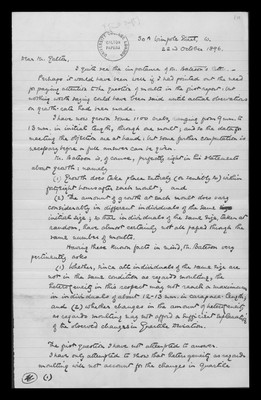 30A Wimpole Street, W
22d October 1896.
Dear Mr. Galton,
I quite see the importance of Mr. Bateson's
Perhaps it would have been wiser if I had pointed out the need
for paying attention to the question of moults in the first report: but
nothing worth saying could have been said until actual observations
on growth-rate had been made.
I have now grown some 1100 crabs, ranging from 9 mm. to
13 mm. in initial length, through one moult, and so the data for
meeting the objection are at hand: but some further computation is
necessary before a full answer can be given.
Mr. Bateson is, of course, perfectly right in his statements
about growth: namely
(1) Growth does take place entirely (or sensibly so) within
forty-eight hours after each moult; and
(2) The amount of growth at each moult does vary
considerably in different individuals of the same
initial size; so that individuals of the same size, taken at
random, have almost certainly not all passed through the
same number of moults.
Having these known facts in mind, Mr. Bateson very
pertinently asks
(1) Whether, since all individuals of the same size are
not in the same condition as regards moulting, the
heterogeneity in this respect may not reach a maximum
in individuals of about 12-13 mm. in carapace-length;
and (2) whether changes in the amount of heterogeneity
as regards moulting may not afford a sufficient explanation
of the observed changes in Quartile deviation.
The first question I have not attempted to answer.
I have only attempted to show that heterogeneity as regards
moulting will not account for the changes in Quartile
(1)